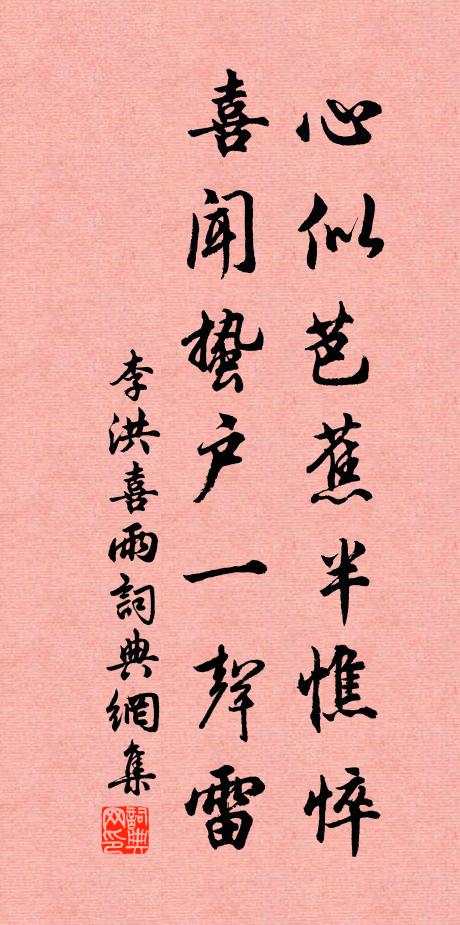 心似芭蕉半憔悴
喜聞蟄户一聲雷
李洪喜雨詞典網集
詞典
网印